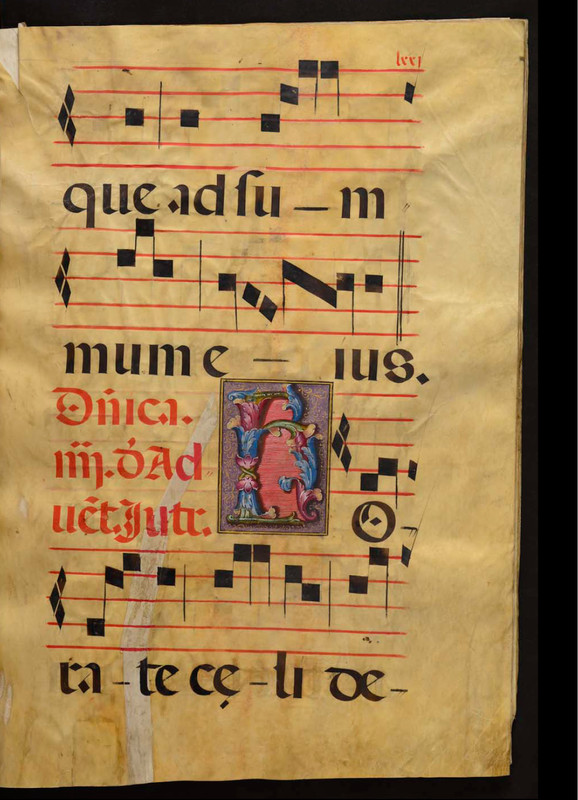 lxxj
que ad su – m
mum e – ius.
Dñica.
iiij. d' Ad
uēt. Intr.
RO –
ra – te cę – li de –